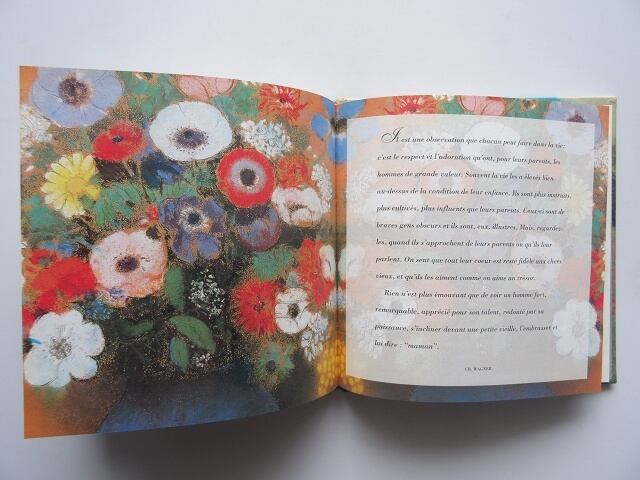 Il est une observation que chacun peut faire dans la vie:
c'est le respect et l'adoration qu'ont, pour leurs parents, les
hommes de grande valeur. Souvent la vie les a élevés bien
au-dessus de la condition de leur enfance. Ils sont plus instruits,
plus cultivés, plus influents que leurs parents. Ceux-ci sont de
braves gens obscurs et ils sont, eux, illustres. Mais, regardez-
les, quand ils s'approchent de leurs parents ou qu'ils leur
parlent. On sent que tout leur coeur est resté fidèle aux chers
vieux, et qu'ils les aiment comme on aime un trésor.
Rien n'est plus émouvant que de voir un homme fort,
remarquable, apprécié pour son talent, redouté par sa
puissance, s'incliner devant une petite vieille, l'embrasser et
lui dire : "maman".
CH. WAGNER